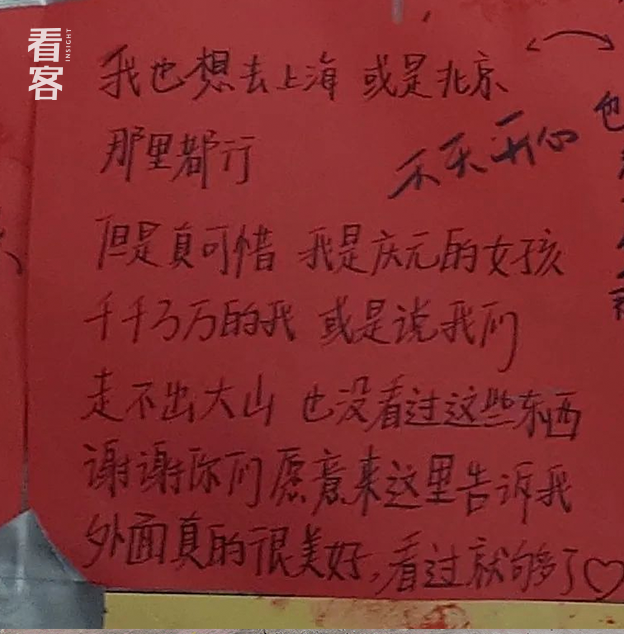 看客
INSIGHT
我也想去上海 或是北京
那里都行
天天开心
但是真可惜 我是庆元的女孩
千千万万的我 或是说我们
走不出大山 也没看过这些东西
谢谢你们愿意来这里告诉我
外面真的很美好,看过就够了♡